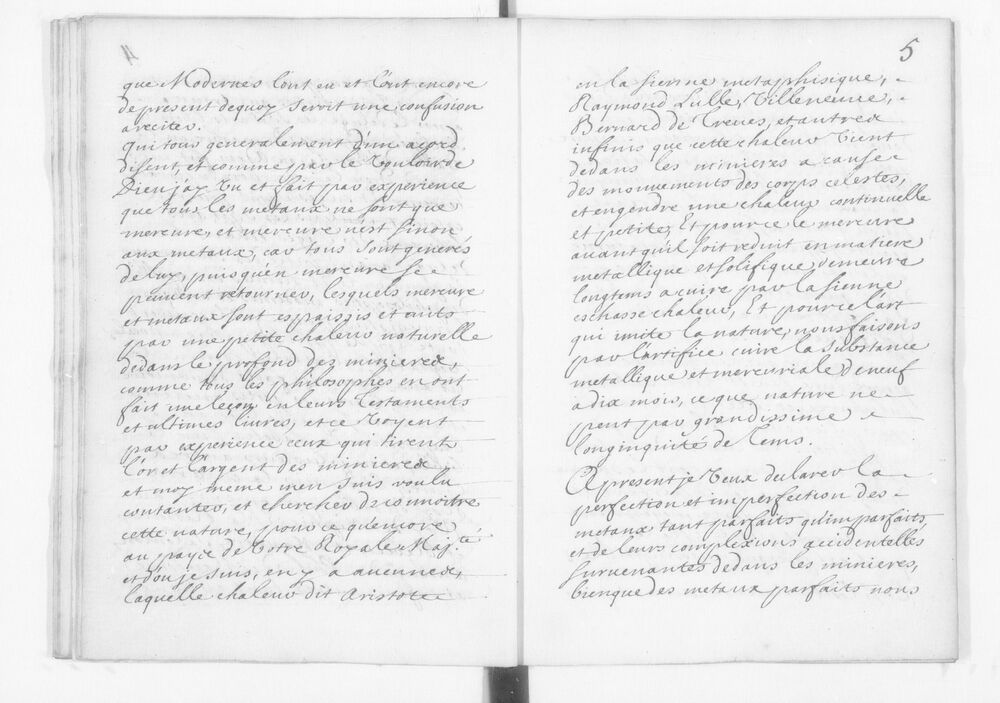 4
que Modernes l'ont eu et l'ont encore
de present dequoy seroit une confusion
a reciter.
Qui tous generalement d'un acord
disent, et comme par le vouloir de
Dieu jay vu et fait par experience
que tous les metaux ne sont que
mercure, et mercure n'est sinon
aux metaux, car tous sont generés
de luy, puisqu'en mercure se
peuuent retourner, lesquels mercure
et metaux sont espaissis et cuits
par une petite chaleur naturelle
dedans le profond des minieres,
comme tous les philosophes en ont
fait une leçon en leurs Testaments
et ultimes liures, et ce voyent
par experience ceux qui tirent
l'or et l'argent des minieres
et moy meme men suis voulu
contanter, et chercher de connoitre
cette nature, pour ce qu'encore
au payis de votre Royale Maj.té
et d'ou je suis, en y a aucunes,
laquelle chaleur dit Aristote
5
en la sienne metaphisique,
Raymond Lulle, Villeneuue,
Bernard de Treues, et autres
infinis que cette chaleur vient
dedans les minieres a cause
des mouuements des corps celestes,
et engendre une chaleur continuelle
et petite, Et pource le mercure
auant qu'il soit reduit en matiere
metallique et solifique, demeure
longtems a cuire par la sienne
eschasse chaleur, Et pource l'art
qui imite la nature, nous faisons
par l'artifice cuire la substance
metallique et mercuriale de neuf
a dix mois, ce que nature ne
peut par grandissime
longinquité de tems.
A present je veux declarer la
perfection et imperfection des
metaux tant parfaits qu'imparfaits,
et de leurs complexions accidentelles
suruenantes dedans les minieres,
bienque des metaux parfaits nous